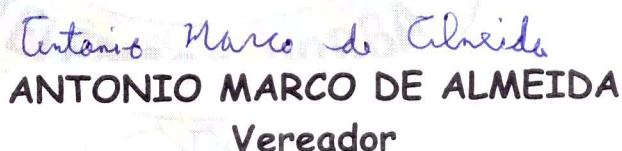 Antonio Marco de Almeida
ANTONIO MARCO DE ALMEIDA
Vereador